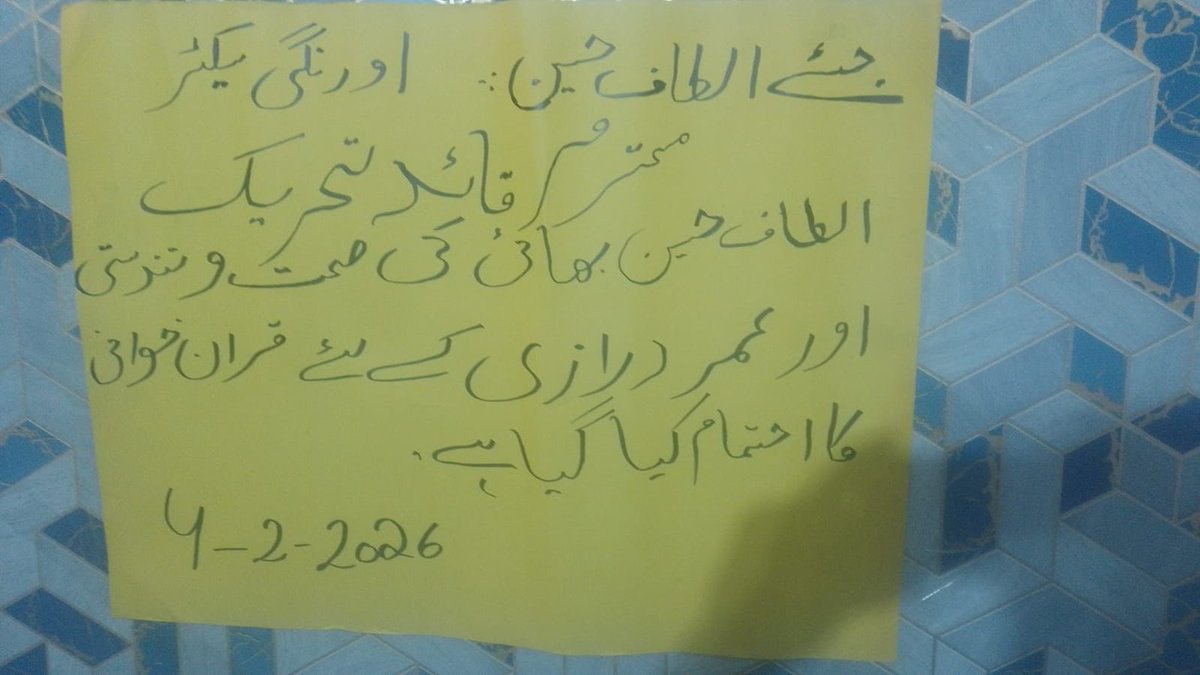 جئے الطاف حسین:: اورنگی سیکٹر
محترم قائد تحریک
الطاف حسین بھائی کی صحت و تندرستی
اور عمر درازی کے لئے قران خوانی
کا احتمام کیا گیا ہے.
4-2-2026